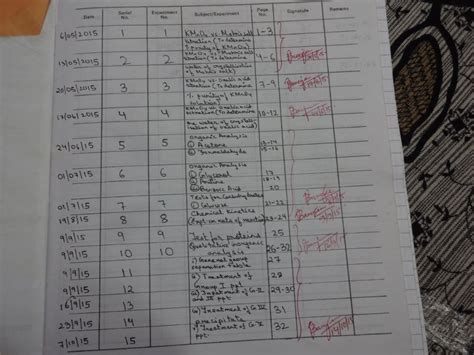 Date Serial No. Experiment No. Subject/Experiment Page No. Signature Remarks
6/05/2015 1 1 KMnO4 vs Mohr's salt 1-3
titration (To determine
% purity of KMnO4)
13/05/2015 2 2 KMnO4 vs Mohr's salt 4-6
titration (To determine
water of crystallisation
of Mohr's salt)
20/05/2015 3 3 KMnO4 vs Oxalic acid 7-9
titration (To determine
% purity of KMnO4
solution)
17/06/2015 4 4 KMnO4 vs Oxalic acid 10-12
titration (To determine
water of crystallisation of oxalic acid)
24/06/15 5 5 Organic Analysis
① Acetone 13-14
② Formaldehyde 15-16
01/07/15 6 6 Organic Analysis
① Glycerol 17
② Aniline 18-19
③ Benzoic Acid 20
01/7/15 7 7 Tests for Carbohydrates
① Glucose 21-22
19/8/15 8 8 Chemical Kinetics
(Expt on rate of reaction) 23-24
9/9/15 9 9 Test for proteins 25
9/9/15 10 10 Qualitative inorganic analysis 26-32
9/9/15 11 1) General group 27
separation table
9/9/15 12 2) Treatment of 28
Group I ppt
16/9/15 13 3) Treatment of G-II 29-30
and III ppt
23/9/15 14 4) Treatment of G-IV 31
precipitate
7/10/15 15 5) Treatment of G-V 32
ppt